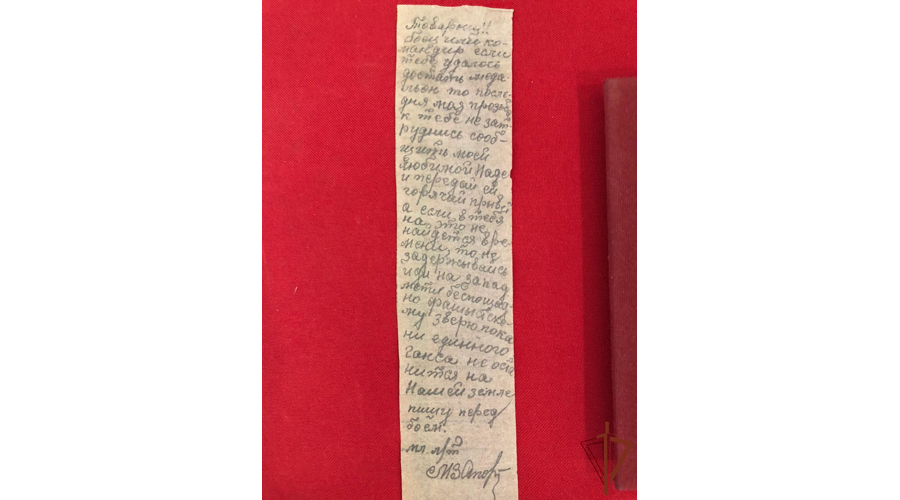 Товарищ!!
боец или ко-
мандир если
тебе удалось
достать меда-
льон то после-
дняя моя прозьба
к тебе не зат-
руднись сооб-
щить моей
любимой Наде
и передай ей
горячай привет
а если в тебя
на это не
найдется вре-
мени, то не
задержывайсь
иди на запад
мсти беспощад-
но фашыйско-
му зверю пока
ни единного
ганса не оста
нится на
Нашей земле
пишу перед
боем.
мл. л/т